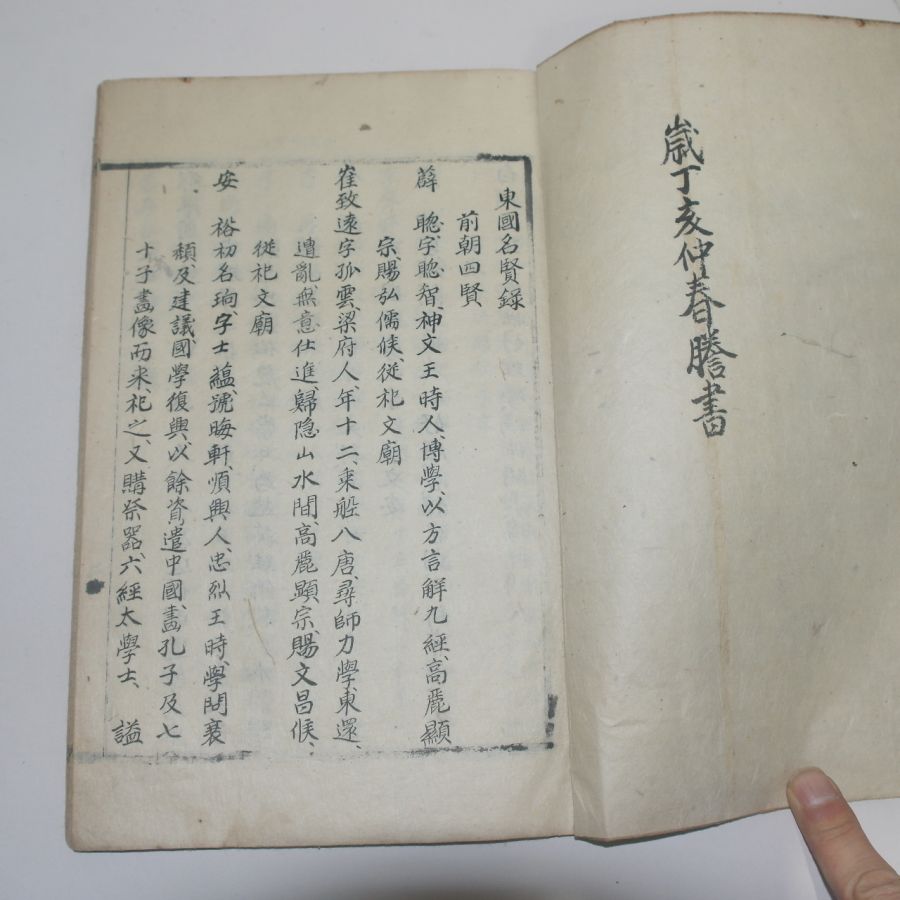 歲丁亥仲春謄書
東國名賢錄
前朝四賢
薛 聰、字聰智、神文王時人、博學、以方言解九經、高麗顯
宗、賜弘儒侯、從祀文廟
崔致遠字孤雲、梁府人、年十二、乘船入唐、尋師力學、東還、
遭亂、無意仕進、歸隐山水間、高麗顯宗、賜文昌侯、
從祀文廟
安 裕初名珦、字士蘊、號晦軒、順興人、忠烈王時、學問衰
頹、及建議、國學復興、以餘資遣中國、畵孔子及七
十子畵像而来、祀之、又購祭器、六經太學士、 謚